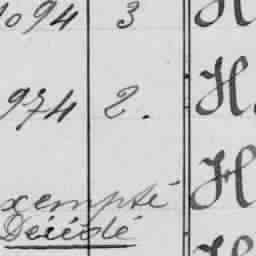 1094 3 H
974 2. H.
exempté H
Décédé H